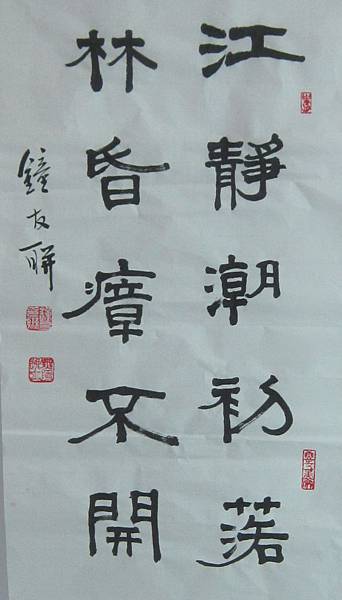 江靜潮初落
林昏瘴不開
鐘友聯